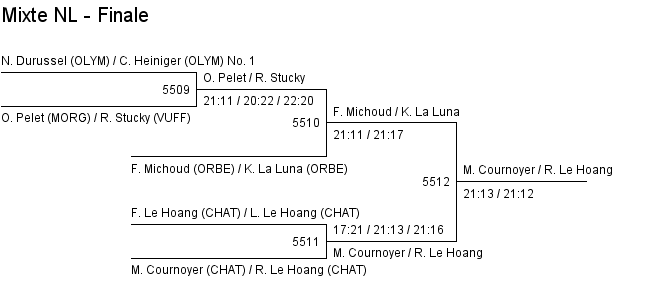 Mixte NL - Finale
N. Durussel (OLYM) / C. Heiniger (OLYM) No. 1
O. Pelet / R. Stucky
5509
21:11 / 20:22 / 22:20
O. Pelet (MORG) / R. Stucky (VUFF)
F. Michoud / K. La Luna
5510
21:11 / 21:17
F. Michoud (ORBE) / K. La Luna (ORBE)
M. Cournoyer / R. Le Hoang
5512
21:13 / 21:12
F. Le Hoang (CHAT) / L. Le Hoang (CHAT)
17:21 / 21:13 / 21:16
5511
M. Cournoyer / R. Le Hoang
M. Cournoyer (CHAT) / R. Le Hoang (CHAT)